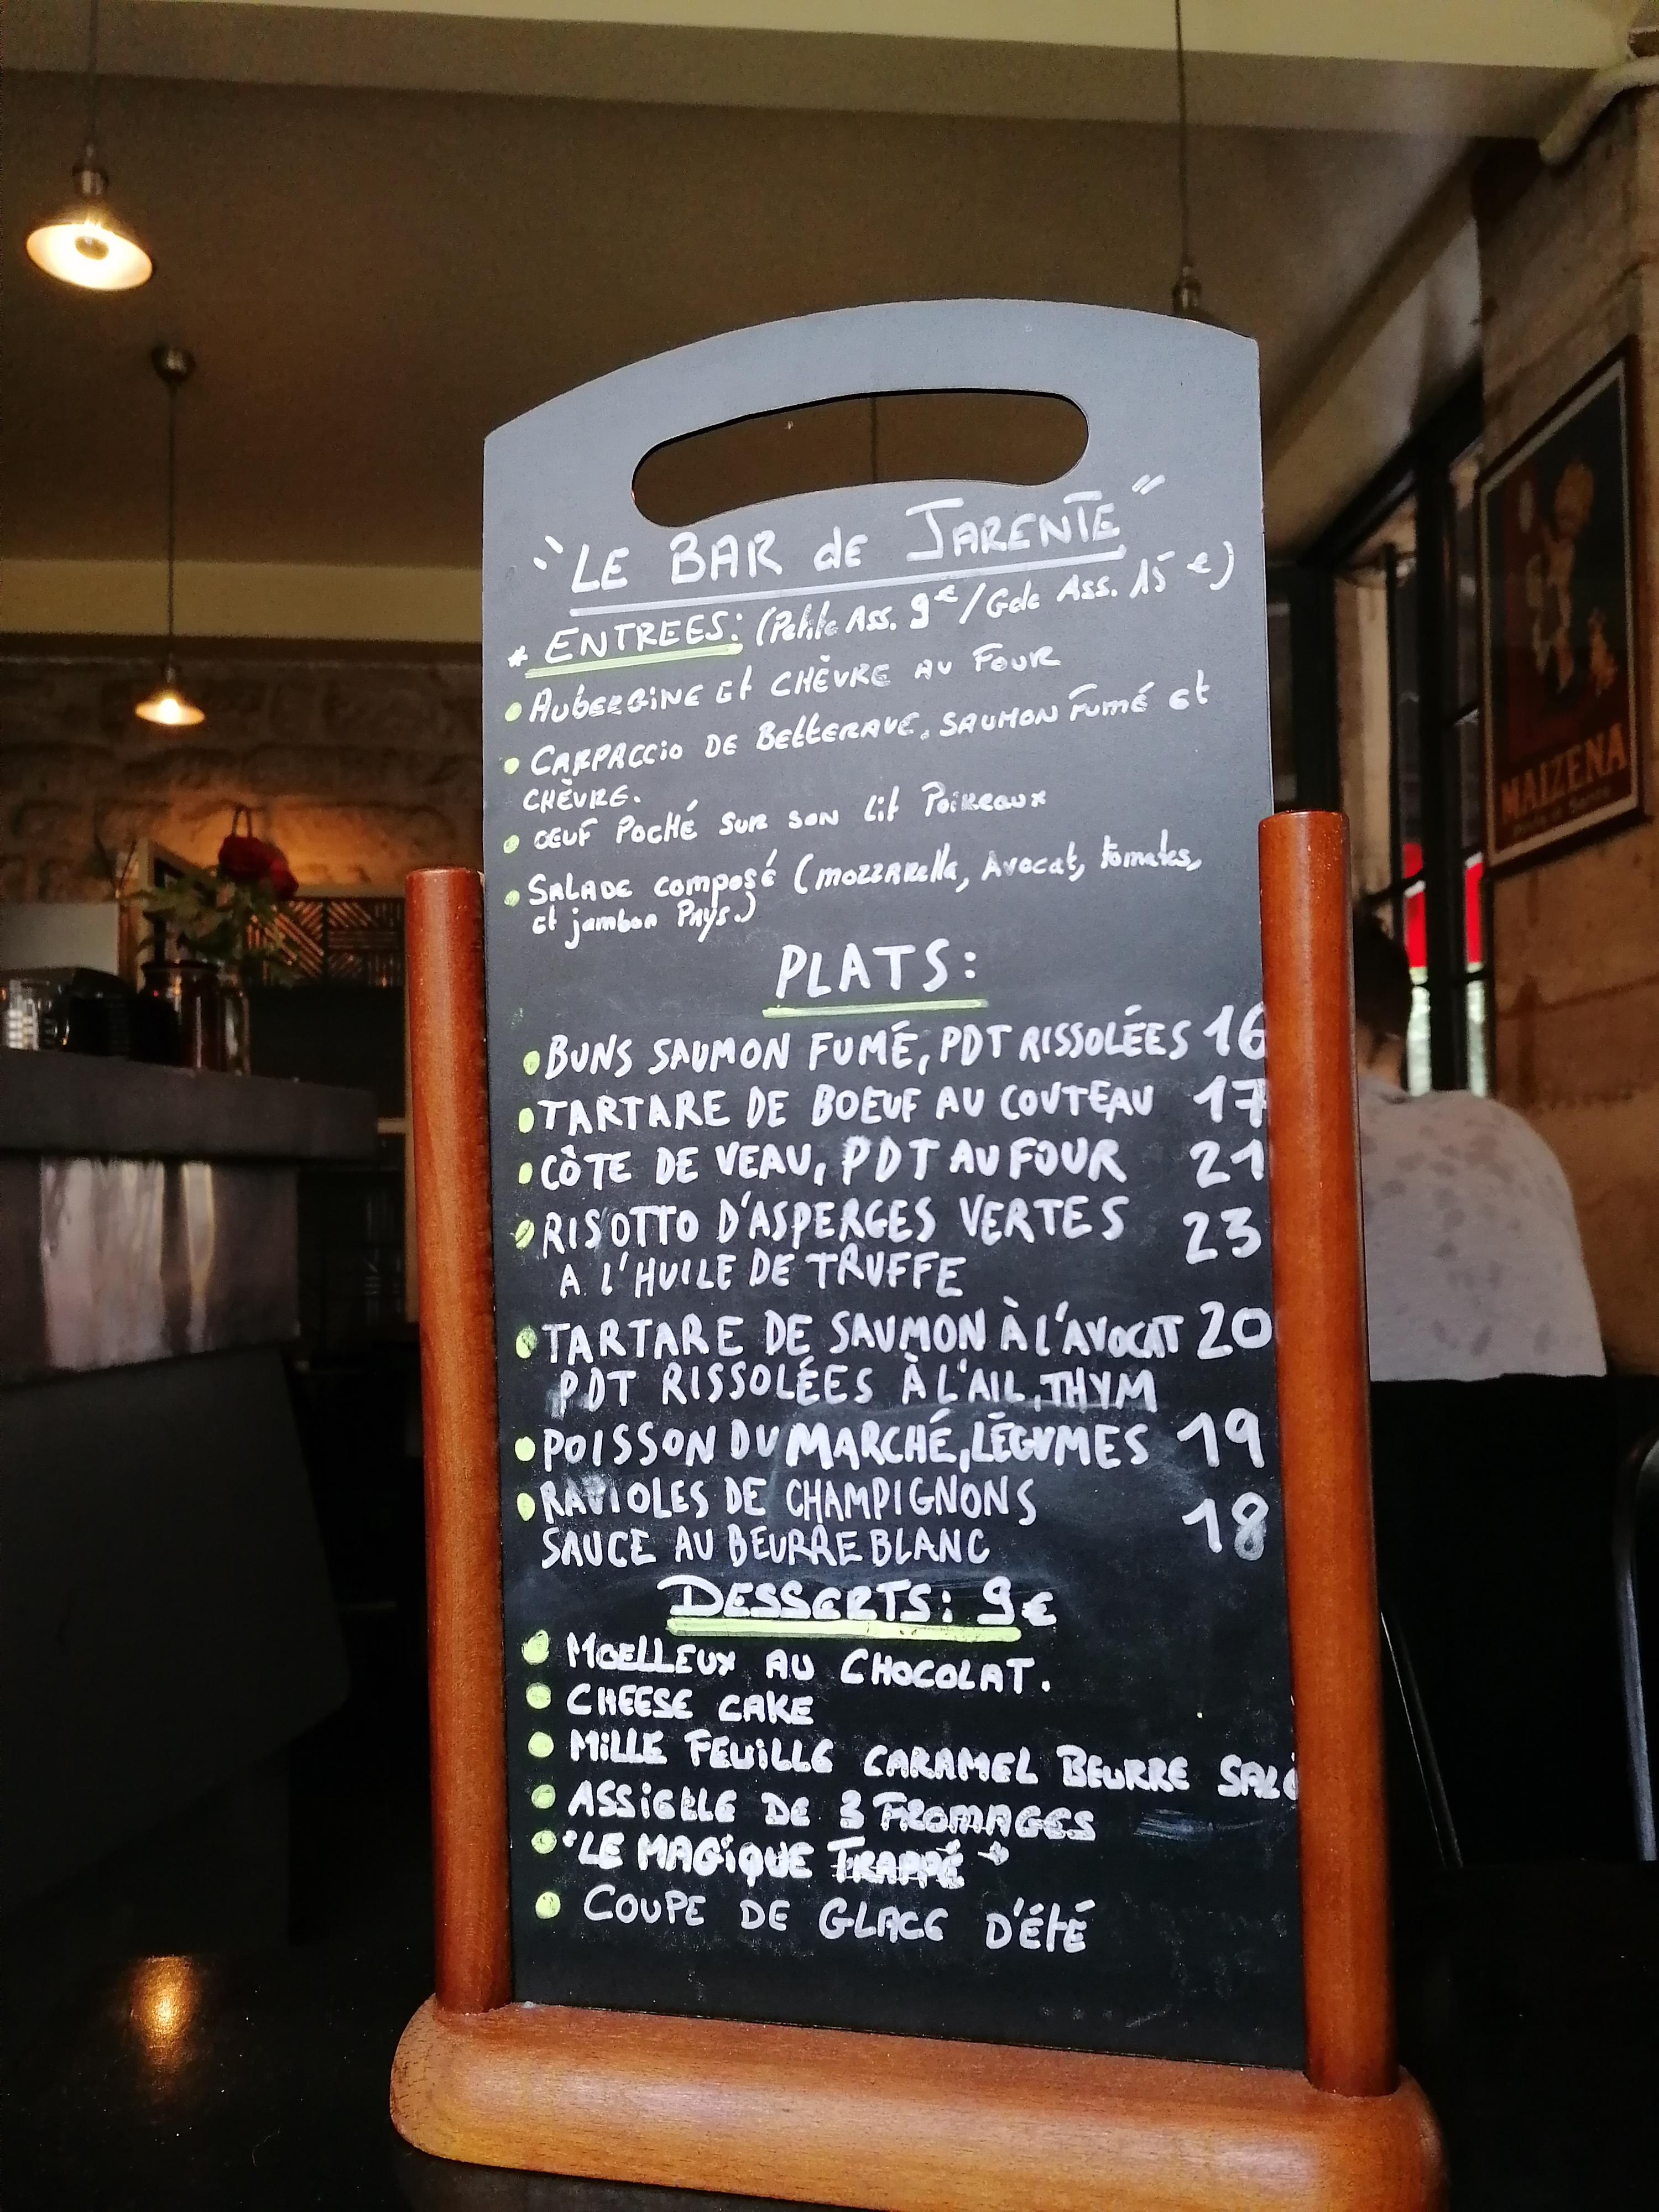 "LE BAR de JARENTE"
* ENTREES: (Petite Ass. 9€/Gde Ass. 15€)
• AUBERGINE Et CHÈVRE AU FOUR
• CARPACCIO DE BETTERAVE, SAUMON FUMÉ Et
CHÈVRE.
• ŒUF POCHÉ SUR SON Lit POIREAUX
• SALADE composé (mozzarella, Avocat, tomates,
Et jambon PAYS.)
PLATS:
• BUNS SAUMON FUMÉ, PDT RISSOLÉES 16
• TARTARE DE BOEUF AU COUTEAU 17
• CÔTE DE VEAU, PDT AU FOUR 21
• RISOTTO D'ASPERGES VERTES 23
A L'HUILE DE TRUFFE
• TARTARE DE SAUMON À L'AVOCAT 20
PDT RISSOLÉES À L'AIL, THYM
• POISSON DU MARCHÉ, LÉGUMES 19
• RAVIOLES DE CHAMPIGNONS 18
SAUCE AU BEURRE BLANC
DESSERTS: 9€
• MOELLEUX AU CHOCOLAT.
• CHEESE CAKE
• MILLE FEUILLE CARAMEL BEURRE SALÉ
• ASSIETTE DE 3 FROMAGES
• "LE MAGIQUE FRAPPÉ"
• COUPE DE GLACE D'ÉTÉ
MAIZENA